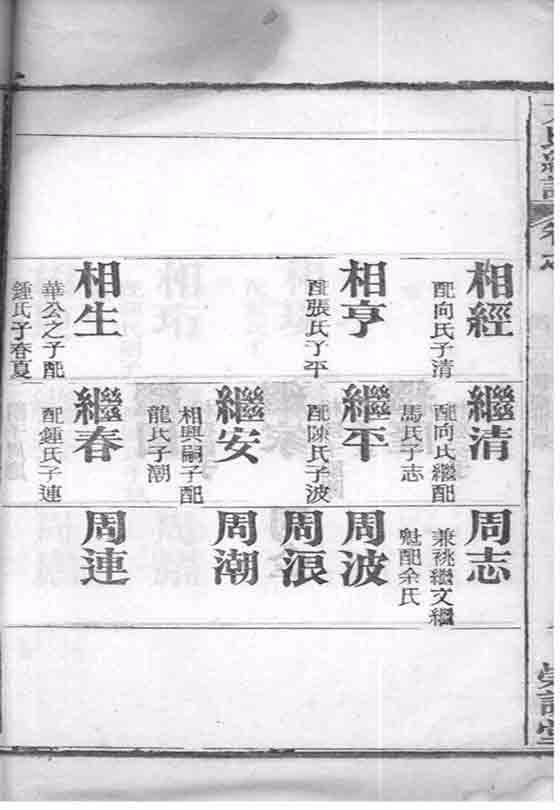 相經
配向氏子清
相亨
配張氏子平
相生
華公之子配
鍾氏子春夏
繼清
配向氏繼配
馬氏子志
繼平
配陳氏子波
繼安
相興嗣子配
龍氏子潮
繼春
配鍾氏子連
周志
兼祧繼文繼
魁配余氏
周波
周浪
周潮
周連